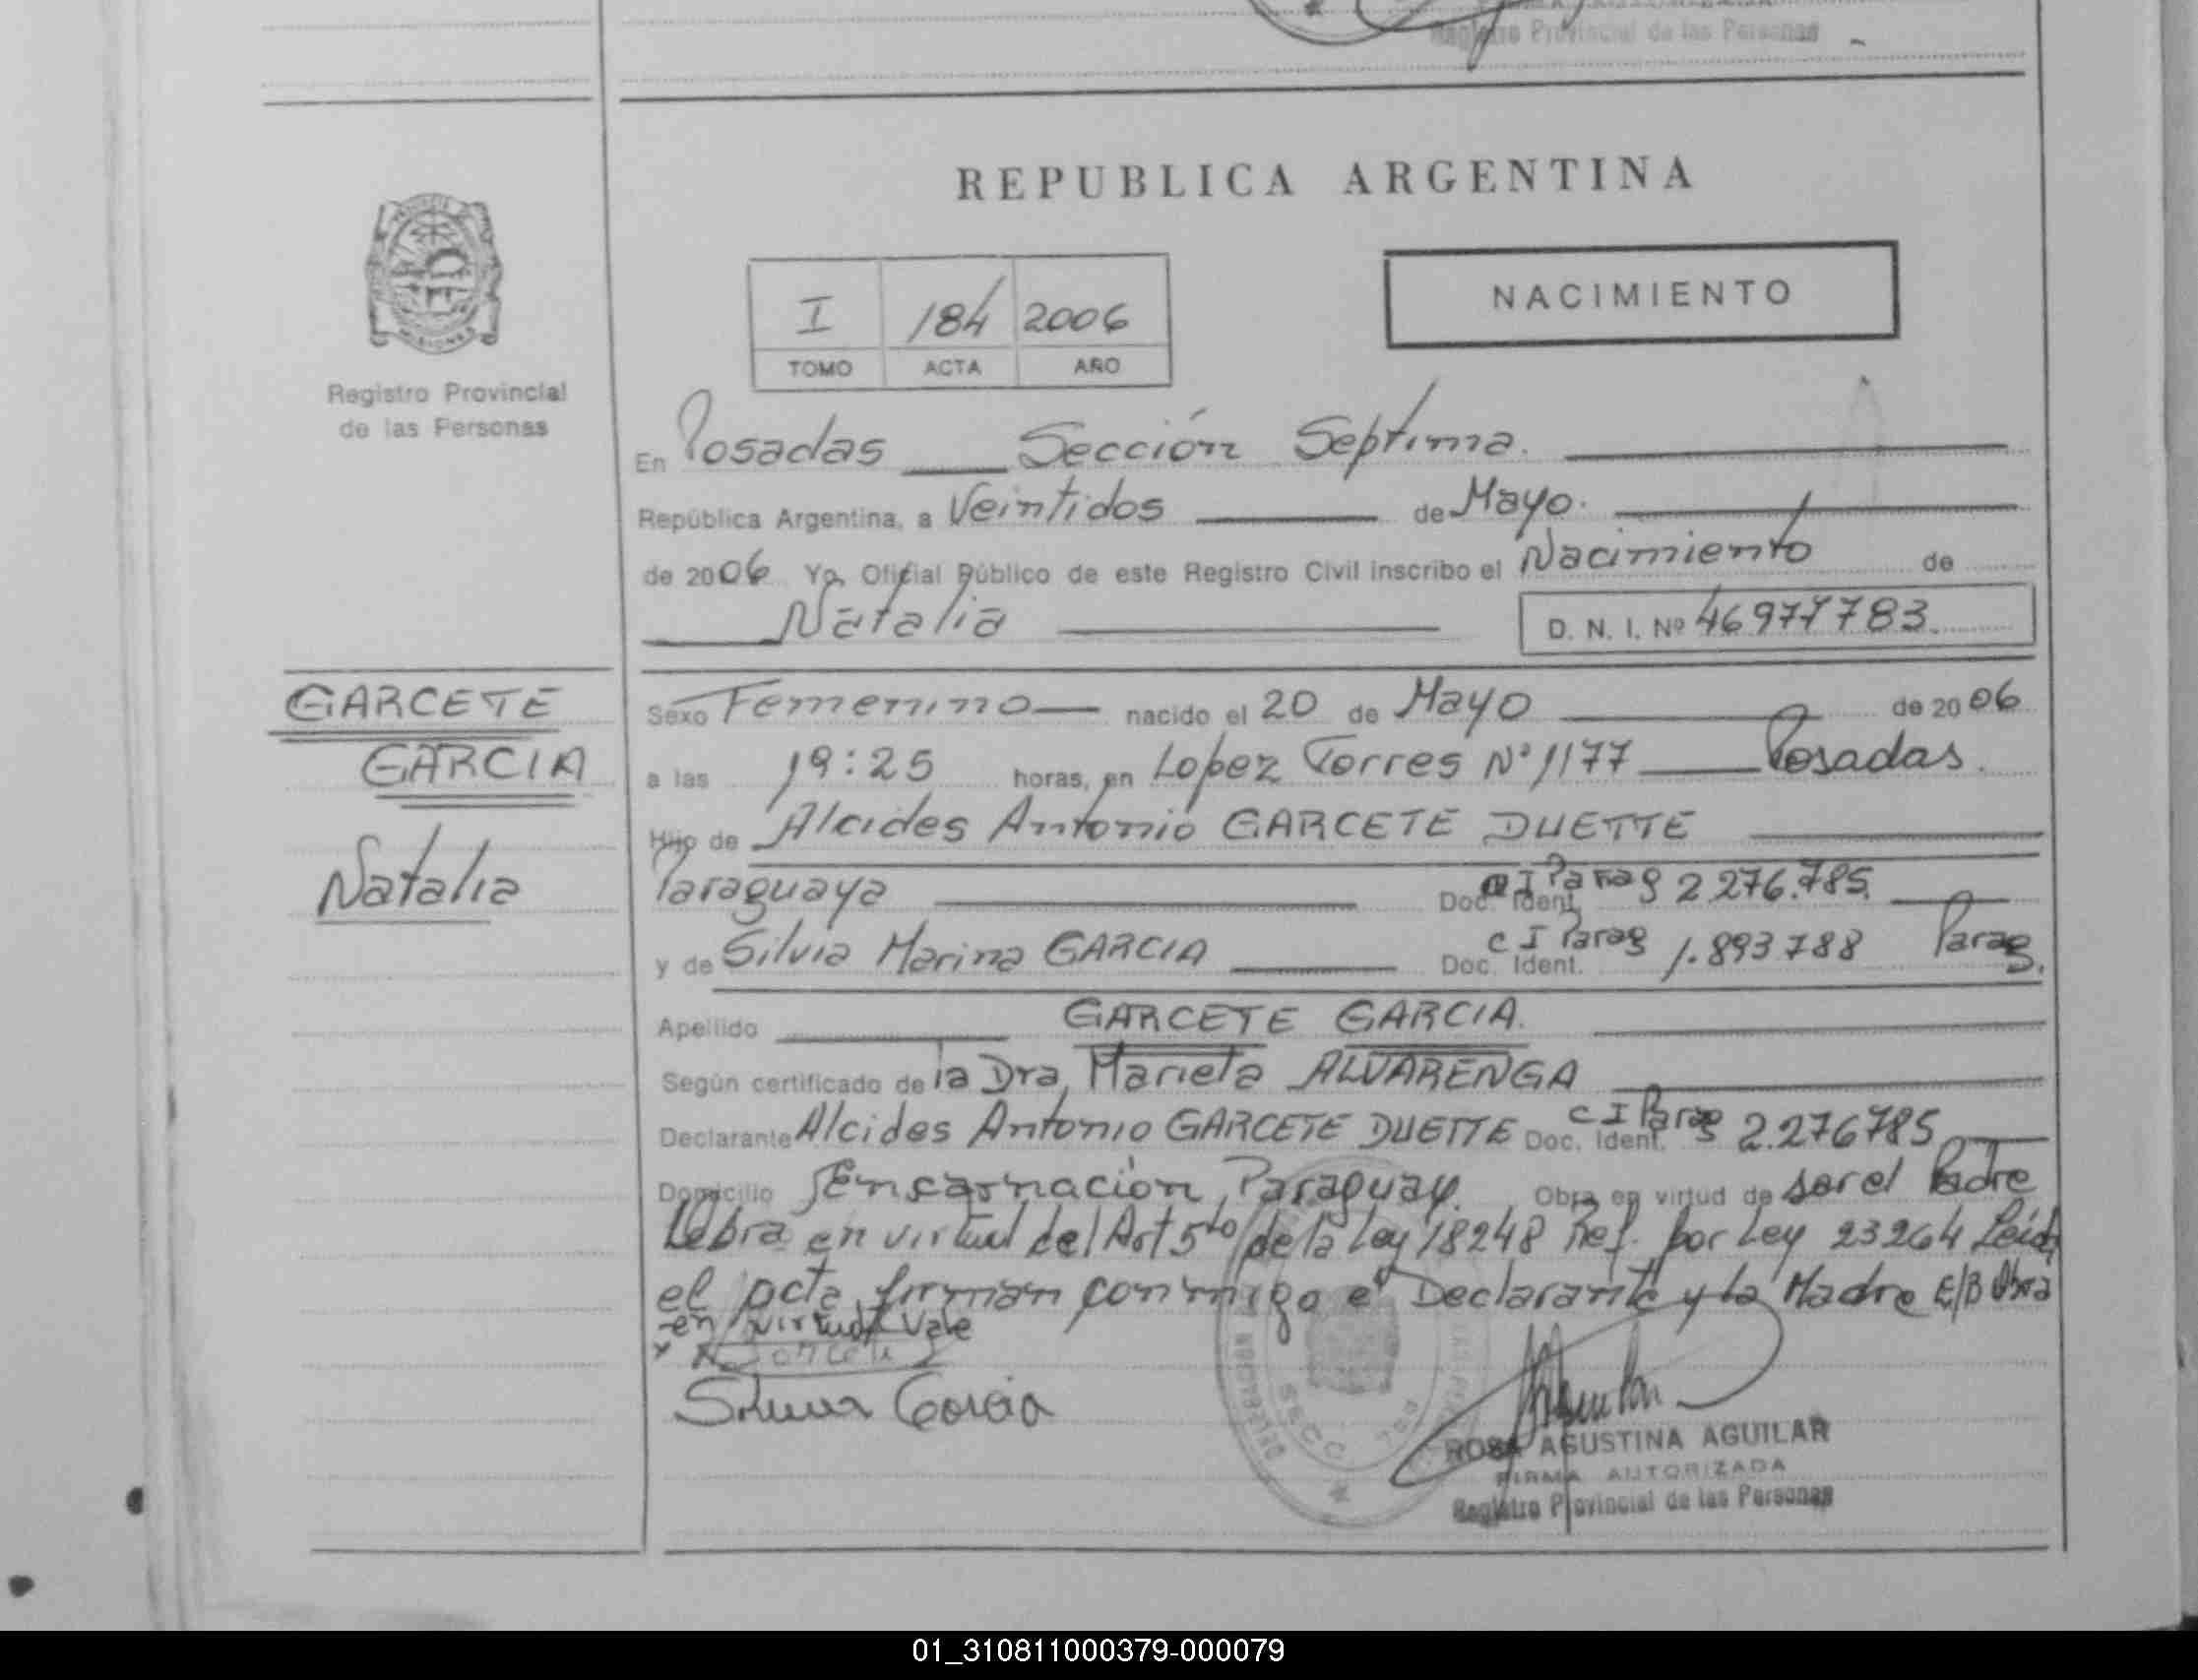 Registro Provincial de las Personas
REPUBLICA ARGENTINA
I 184 2006
TOMO ACTA AÑO
NACIMIENTO
Registro Provincial
de las Personas
En Posadas Sección Septima.
República Argentina, a Veintidos de Mayo.
de 2006 Yo, Oficial Público de este Registro Civil inscribo el Nacimiento de
Natalia D. N. I. Nº 46977783
GARCETE
GARCIA
Natalia
Sexo Femenino nacido el 20 de Mayo de 2006
a las 19:25 horas, en Lopez Torres Nº 1177 Posadas.
Hijo de Alcides Antonio GARCETE DUETTE
Paraguaya Doc. Ident. CI Parag 2.276.785
y de Silvia Marina GARCIA Doc. Ident. CI Parag 1.893788 Parag.
Apellido GARCETE GARCIA.
Según certificado de la Dra, Marieta ALVARENGA
Declarante Alcides Antonio GARCETE DUETTE Doc. Ident. CI Parag 2.276785
Domicilio Encarnación, Paraguay. Obra en virtud de ser el Padre
Obra en virtud del Art 5to de la Ley 18248 Ref. por Ley 23264 Leida
el acta firman conmigo el Declarante y la Madre E/B Obra
en virtud Vale
Silvia Garcia
ROSA AGUSTINA AGUILAR
FIRMA AUTORIZADA
Registro Provincial de las Personas
SECC 7ma
01_310811000379-000079